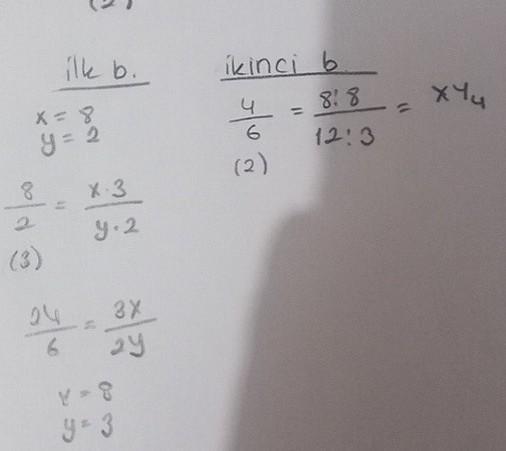 (2)
ilk b.
x = 8
y = 2
8/2 = x·3/y·2
(3)
24/6 = 3x/2y
x = 8
y = 3
ikinci b
4/6 = 8:8/12:3 =
(2)